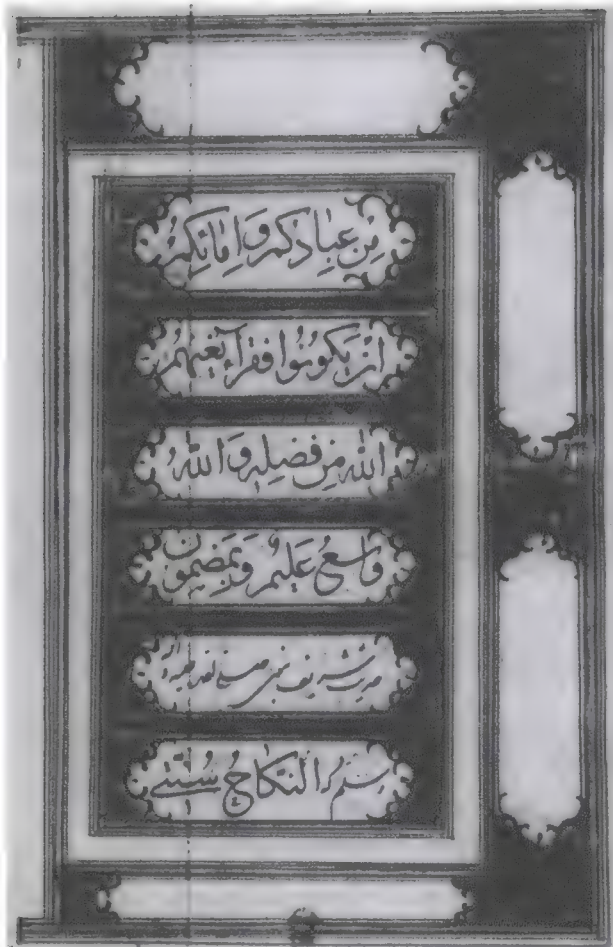 مِنْ عِبَادِكُمْ وَاِمَائِكُمْ
اِنْ يَكُونُوا فُقَرَآءَ يُغْنِهِمُ
اللّٰه مِنْ فَضْلِهِ وَاللّٰهُ
وَاسِعٌ عَلِيمٌ وَبِمَضْمُونِ
شريف نبى صلى الله عليه
وسلم النِّكَاحُ سُنَّتِي